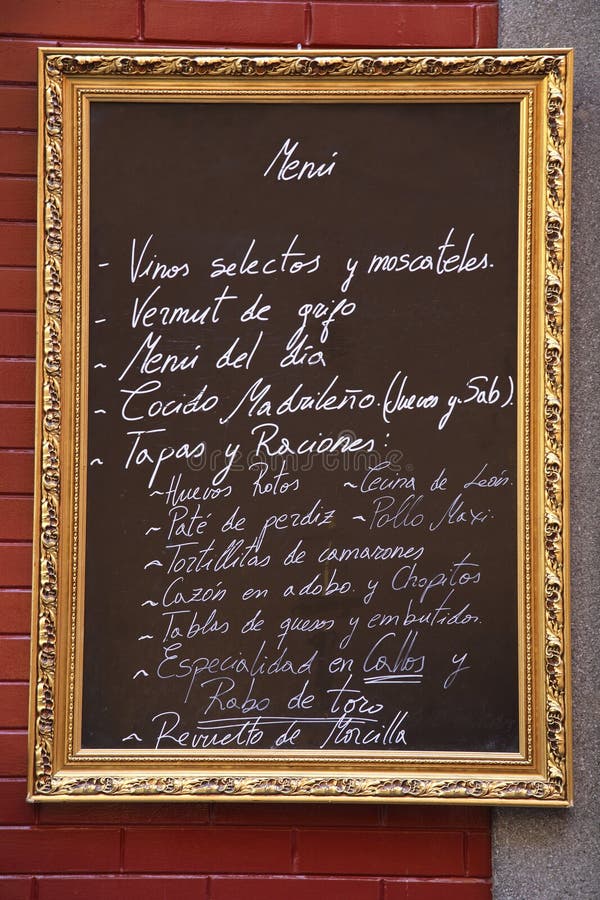 Menú
- Vinos selectos y moscateles.
- Vermut de grifo
~ Menú del día
~ Cocido Madrileño. (Jueves y Sab).
~ Tapas y Raciones:
~ Huevos Rotos ~ Cecina de León.
~ Paté de perdiz ~ Pollo Maxi.
~ Tortillitas de camarones
~ Cazón en adobo y Chopitos
~ Tablas de quesos y embutidos.
~ Especialidad en Callos y
Rabo de toro
~ Revuelto de Morcilla
dreamstime.com